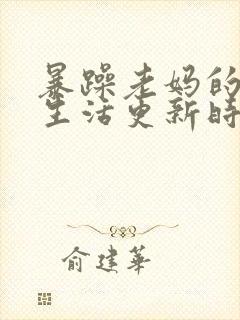 暴躁老妈的
生活更新时
俞建华